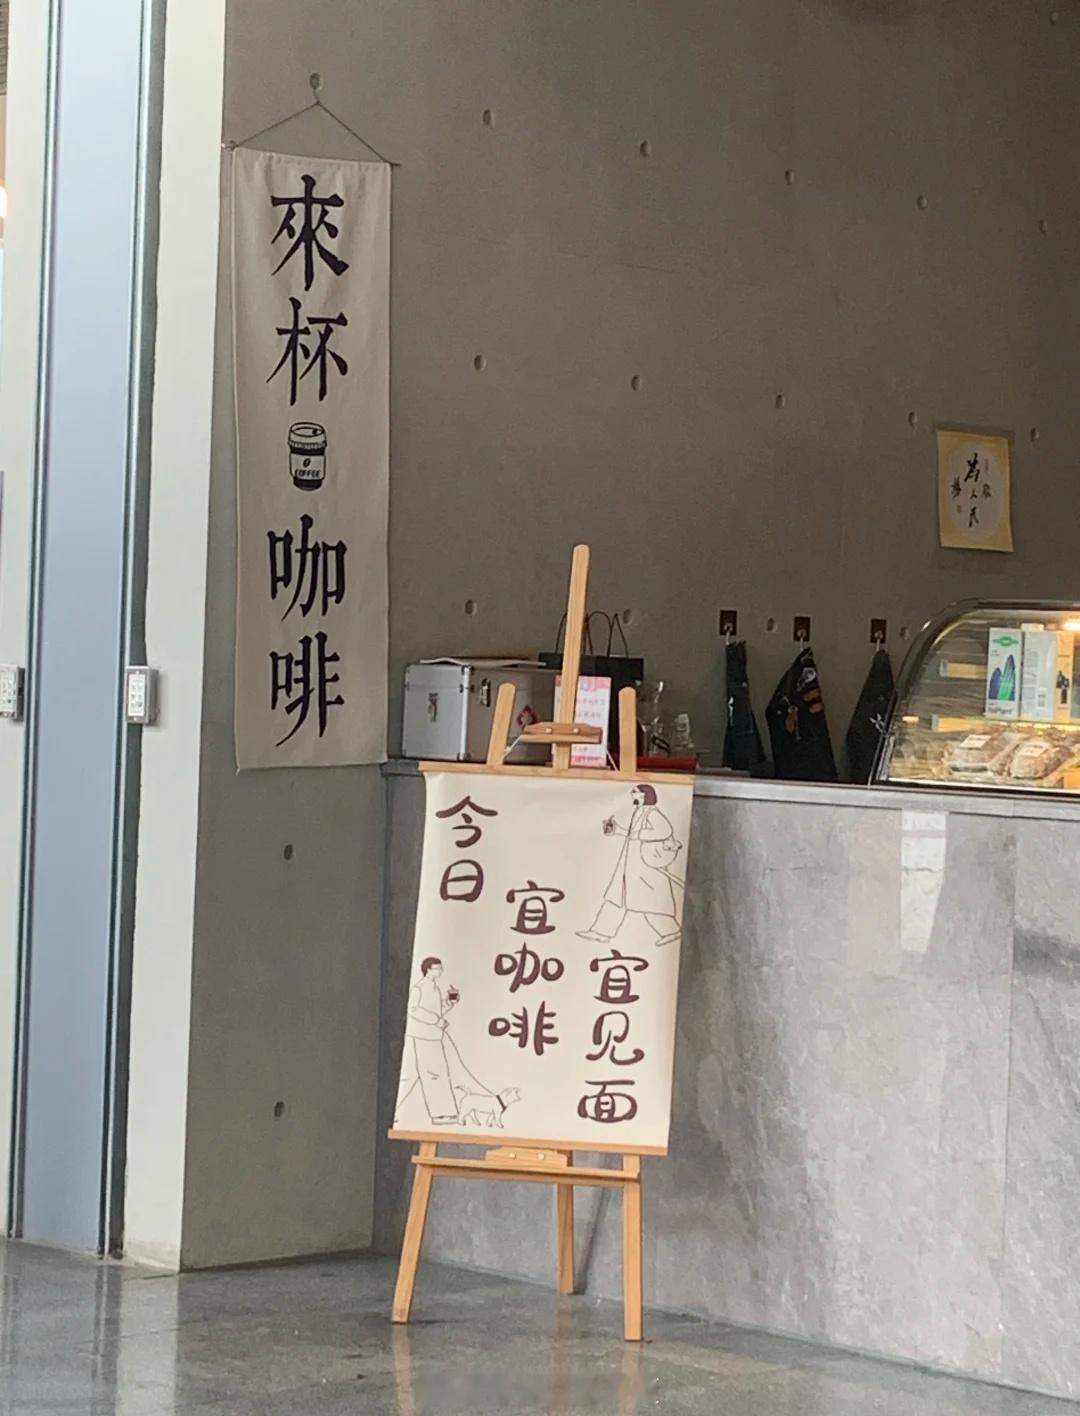 來杯咖啡
COFFEE
今日
宜咖啡
宜见面
為人民